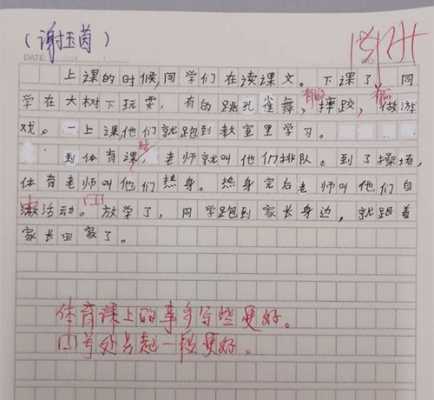 (谢玉茵)
DATE
上课的时候,同学们在读课文。下课了,同
学在大树下玩耍,有的跳孔雀舞,有的摔跤,有的做游
戏。一上课他们就跑到教室里学习。
到体育课时,老师就叫他们排队。到了操场,
体育老师叫他们热身。热身完后老师叫他们自
由活动。放学了,同学跑到家长身边,就跟着
家长回家了。
体育课上的事多写些更好。
口号处另起一段更好。